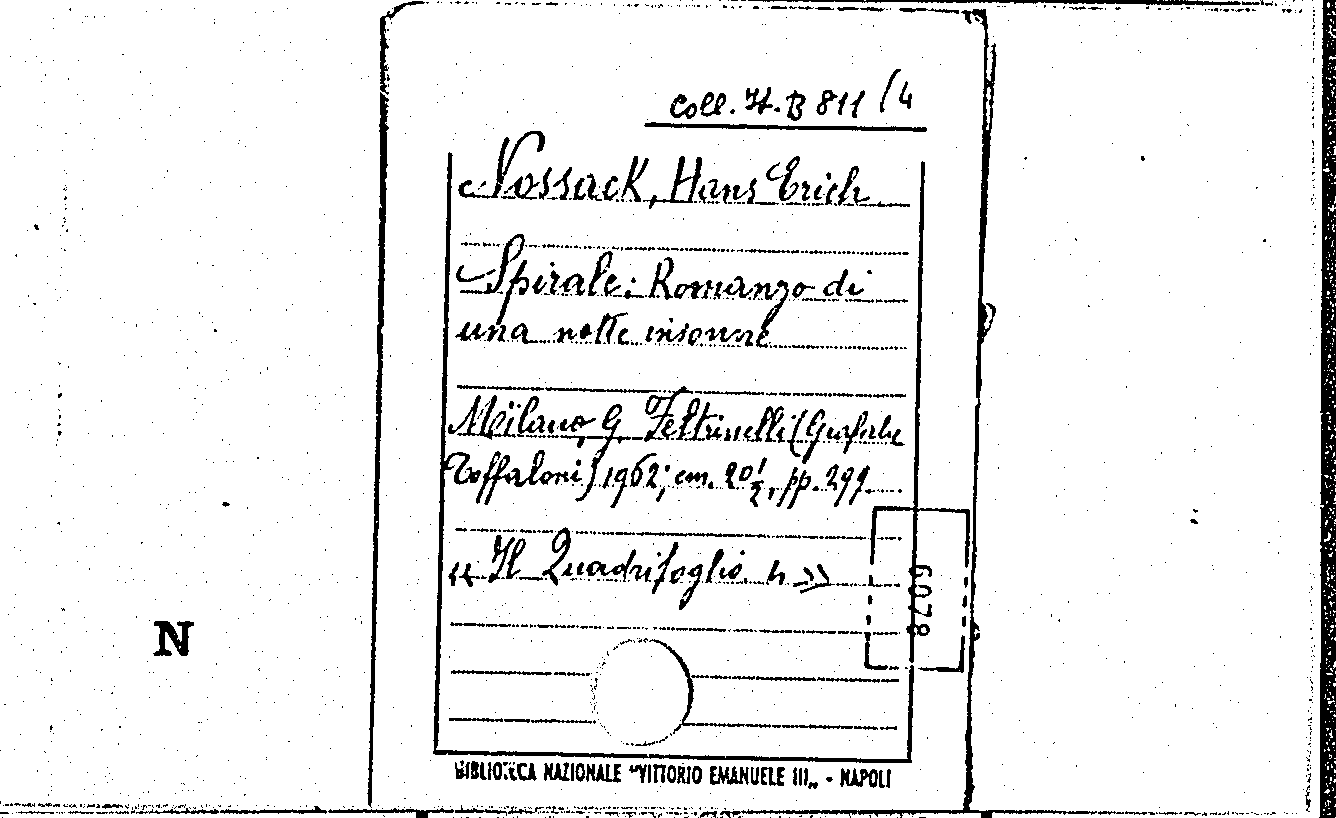 Coll. It. B 811/4
Nossack, Hans Erich
Spirale: Romanzo di
una notte insonne
Milano, G. Feltrinelli (Grafiche
Toffaloni) 1962; cm. 20½, pp. 299.
« Il Quadrifoglio. 4 »
6078
N
BIBLIOTECA NAZIONALE "VITTORIO EMANUELE III„ - NAPOLI